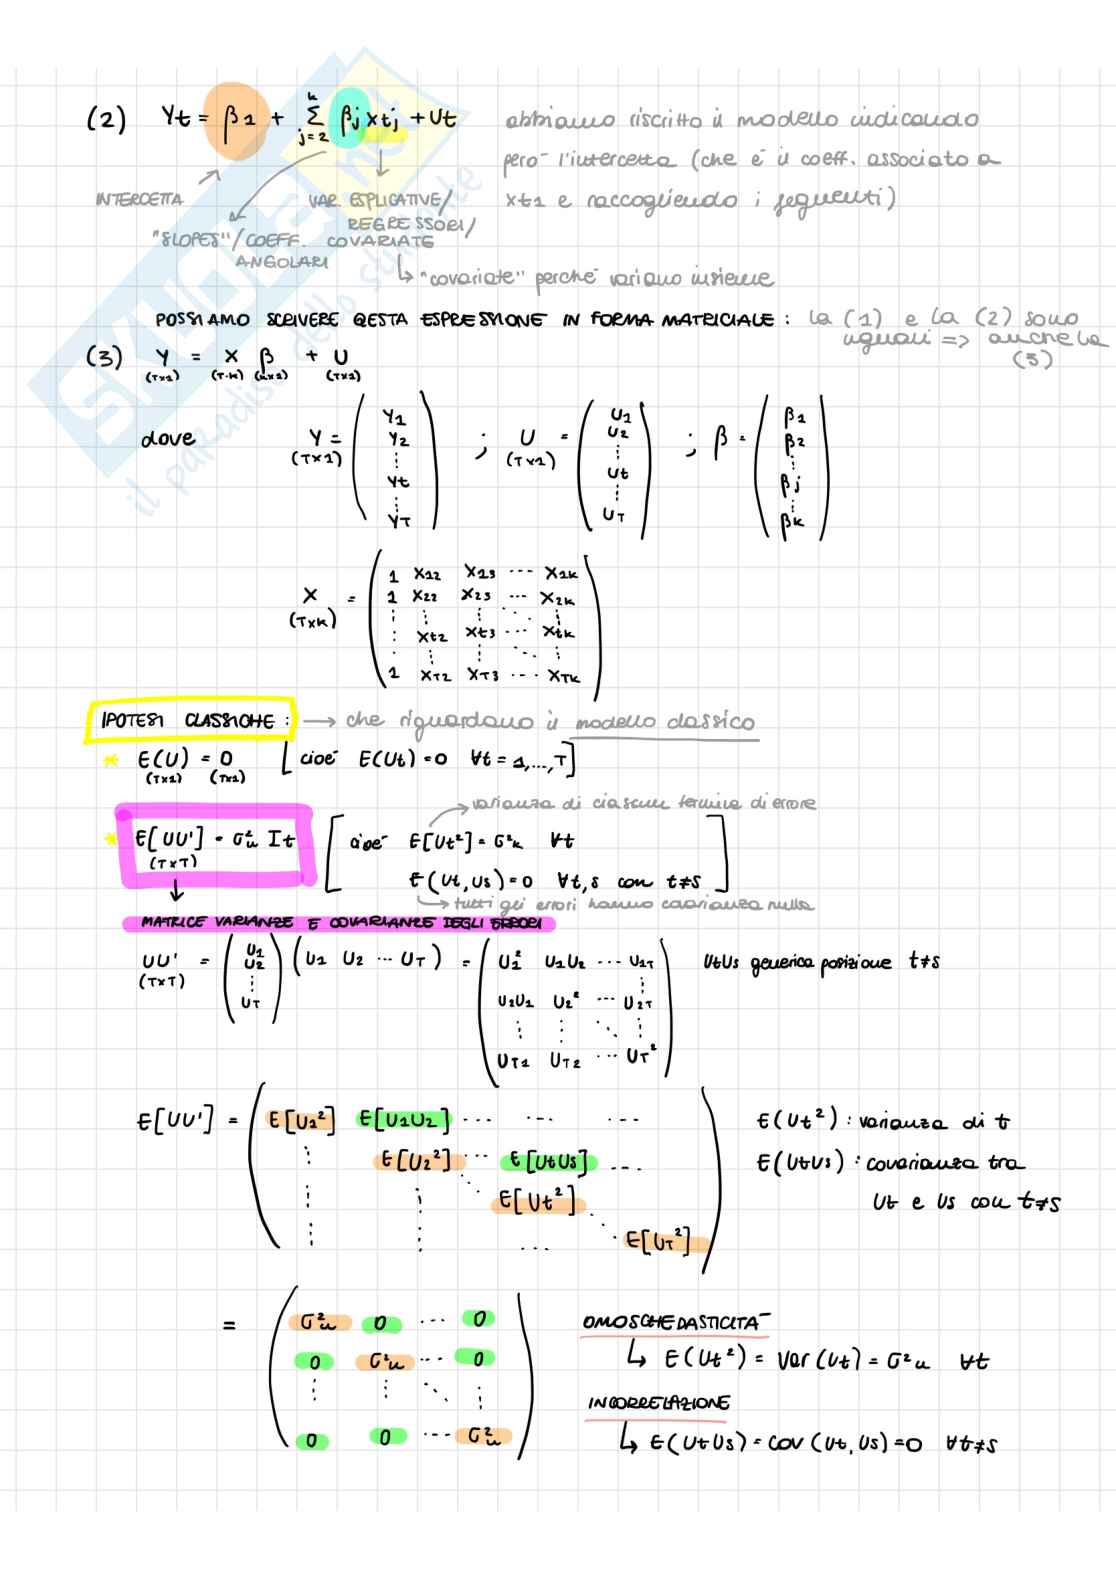 (2) Yt = β1 + Σ βj xtj + Ut
k
j=2
abbiamo riscritto il modello indicando
però l'intercetta (che è il coeff. associato a
xt1 e raccogliendo i seguenti)
INTERCETTA
VAR ESPLICATIVE/
REGRESSORI/
COVARIATE
"SLOPES"/COEFF.
ANGOLARI
↳ "covariate" perché variano insieme
POSSIAMO SCRIVERE QESTA ESPRESSIONE IN FORMA MATRICIALE : la (1) e la (2) sono
uguali => anche la
(3)
(3) Y = X β + U
(T×1) (T·K) (K×1) (T×1)
dove Y = (T×1) ( Y1 Y2 ⋮ Yt ⋮ YT ) ; U = (T×1) ( U1 U2 ⋮ Ut ⋮ UT ) ; β = ( β1 β2 ⋮ βj ⋮ βk )
X = (T×K)
1 X12 X13 ... X1k
1 X22 X23 ... X2k
⋮ Xt2 Xt3 ... Xtk
1 XT2 XT3 ... XTk
IPOTESI CLASSICHE : → che riguardano il modello classico
* E(U) = 0 [cioè E(Ut)=0 ∀t = 1,...,T]
(T×1) (T×1)
→ varianza di ciascun termine di errore
* E[UU'] = σ²u It [cioè E[Ut²] = σ²k ∀t
(T×T)
E(Ut, Us)=0 ∀t,s con t≠s]
↳ tutti gli errori hanno covarianza nulla
MATRICE VARIANZE E COVARIANZE DEGLI ERRORI
UU' = ( U1 U2 ⋮ UT ) (U1 U2 ... UT) =
(T×T)
U1² U1U2 ... U1T
U2U1 U2² ... U2T
UT1 UT2 ... UT²
UtUs generica posizione t≠s
E[UU'] = E[U1²] E[U1U2] ... ... ...
E[U2²] ... E[UtUs] ...
E[Ut²]
E[UT²]
E(Ut²) : varianza di t
E(UtUs) : covarianza tra
Ut e Us con t≠s
=
σ²u 0 ... 0
0 σ²u ... 0
0 0 ... σ²u
OMOSCHEDASTICITÀ
↳ E(Ut²) = Var(Ut) = σ²u ∀t
INCORRELAZIONE
↳ E(UtUs) = COV(Ut, Us) = 0 ∀t≠s
SKUOLA.net
il paradiso dello studente